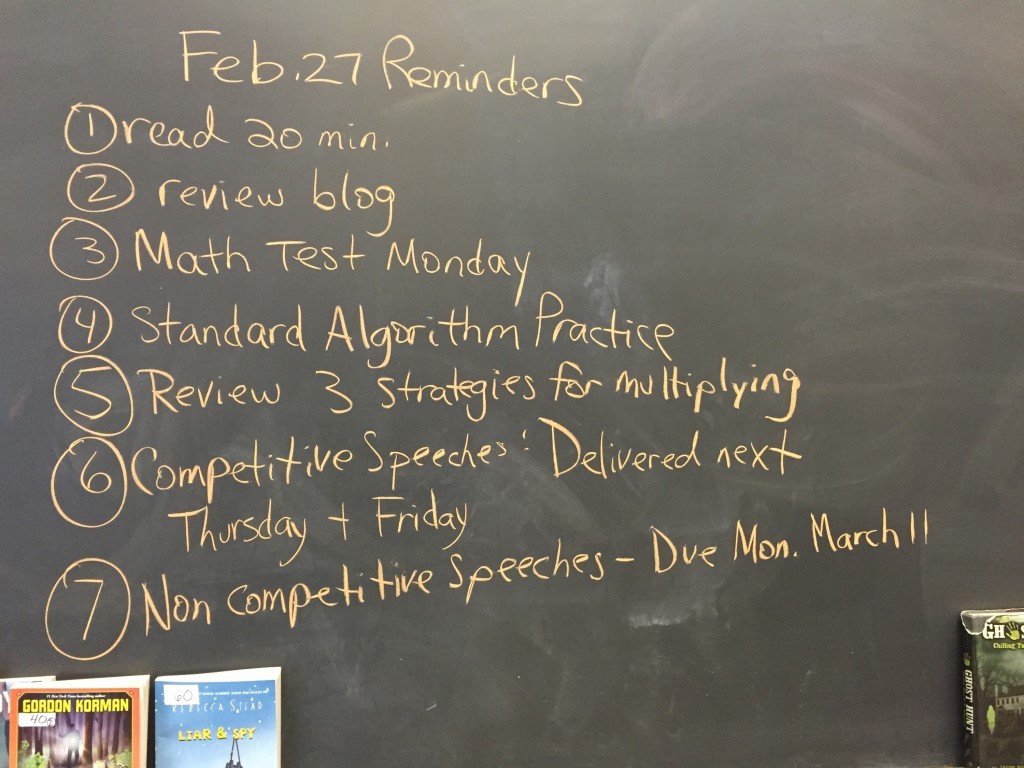 Feb. 27 Reminders
① read 20 min.
② review blog
③ Math Test Monday
④ Standard Algorithm Practice
⑤ Review 3 strategies for multiplying
⑥ Competitive Speeches: Delivered next
Thursday + Friday
⑦ Non Competitive Speeches - Due Mon. March 11
#1 New York Times bestselling author
GORDON KORMAN
40
60
REBECCA STEAD
LIAR & SPY
GHOST HUNT